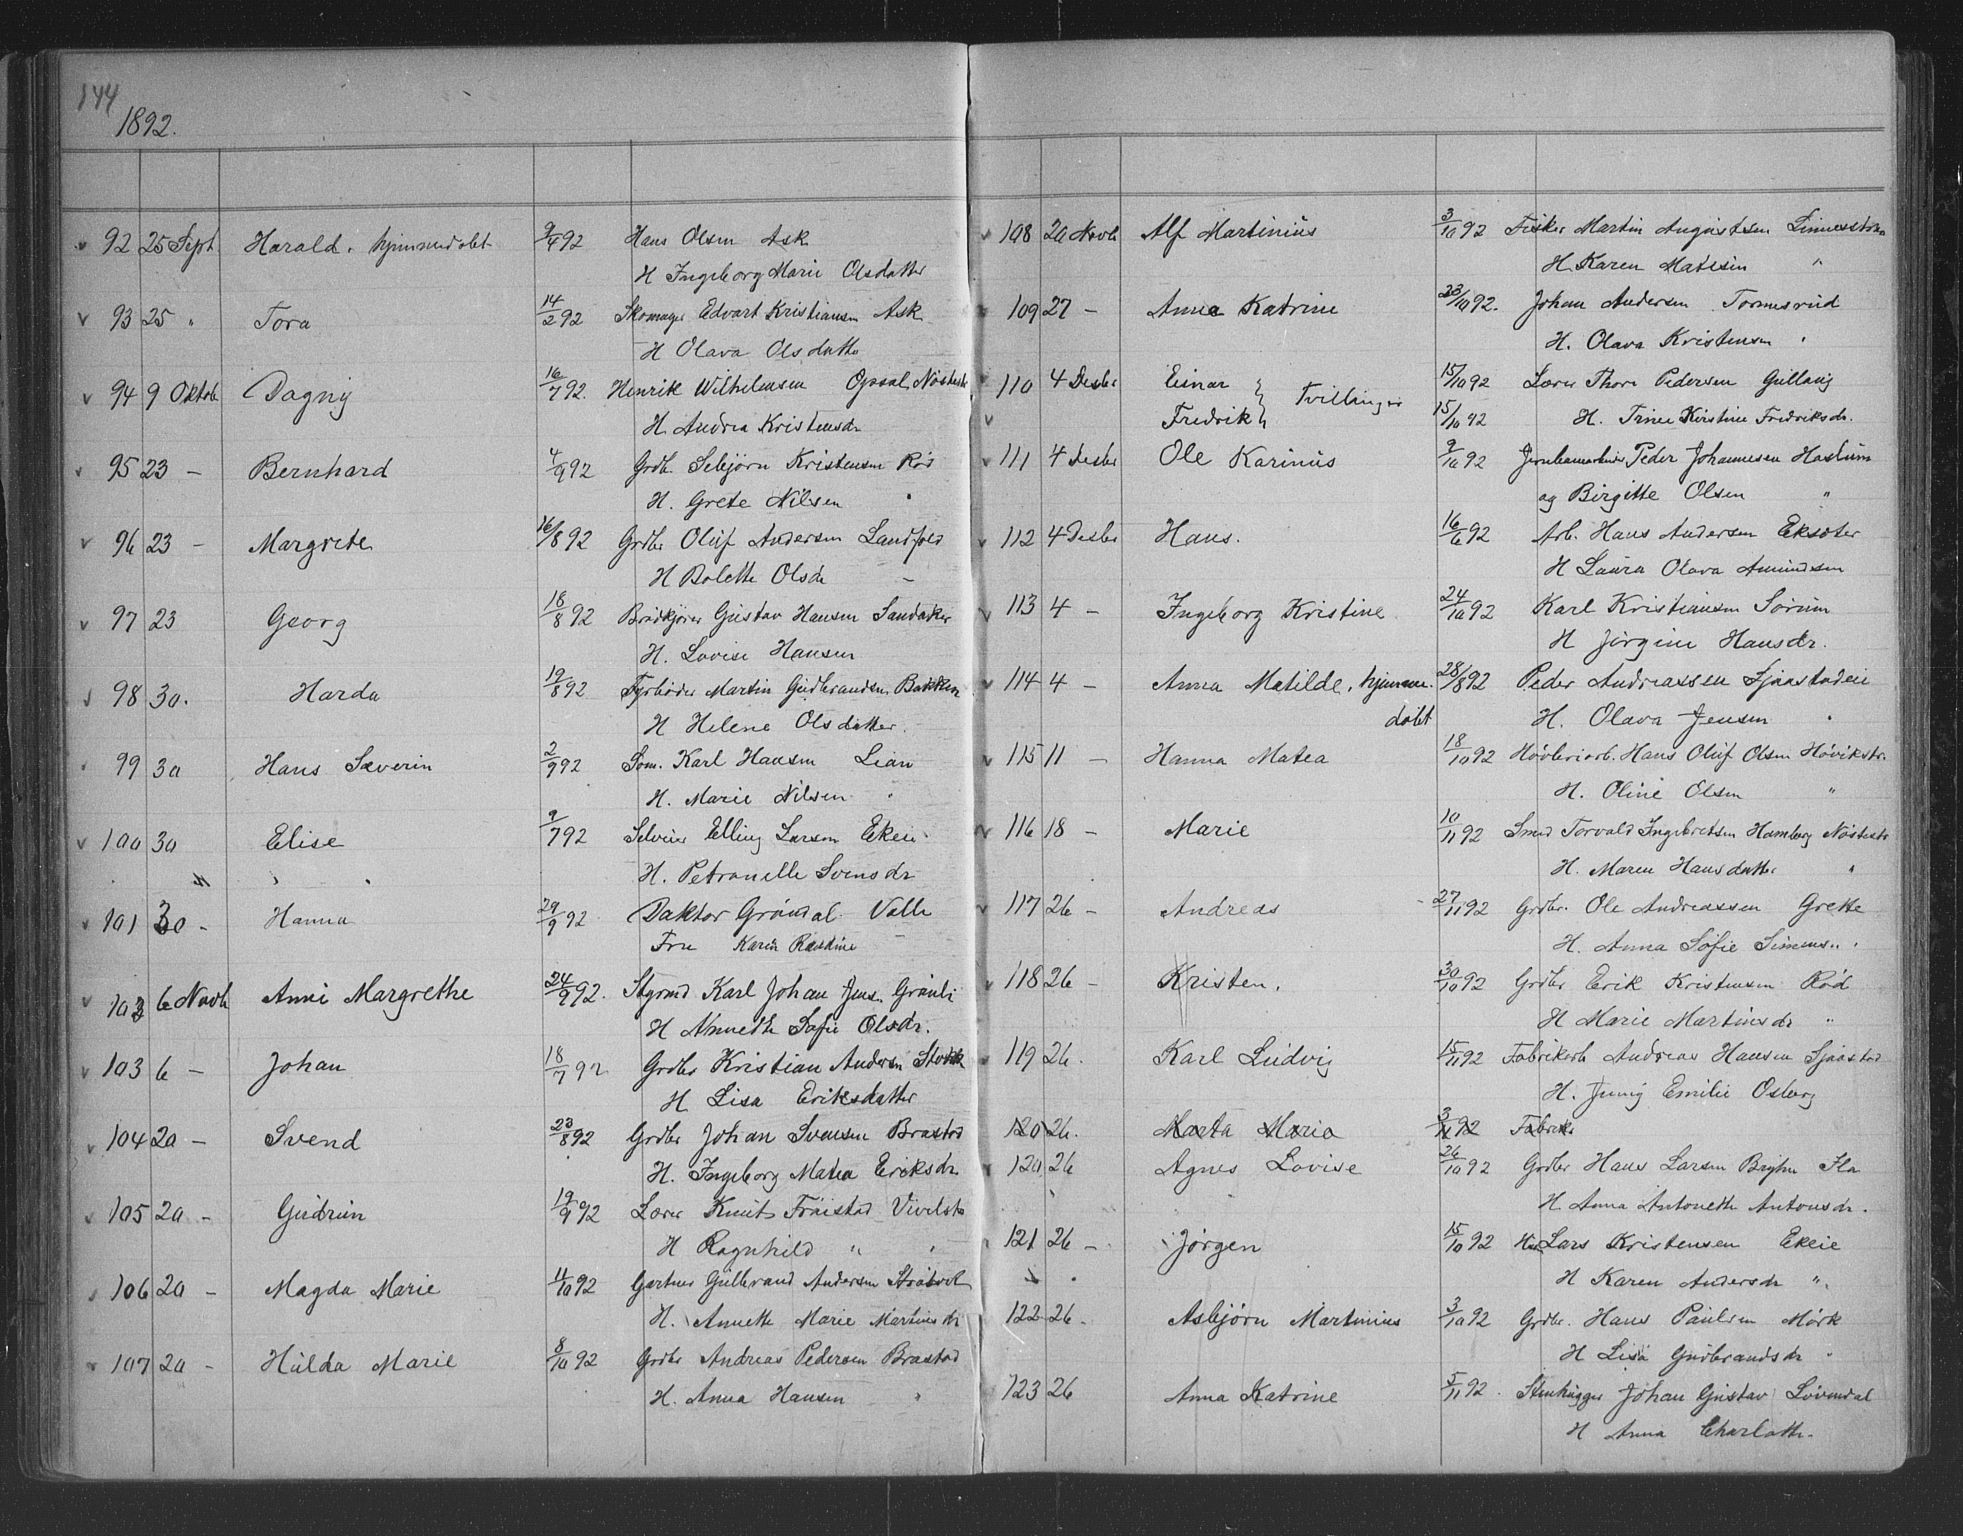 144
1892.
92 25 Sept Harald. hjemmedøbt 9/4 92 Hans Olsen Ask
H Ingeborg Marie Olsdatter
93 25 " Tora 14/2 92 Skomager Edvart Kristiansen Ask
H Olava Olsdatter
94 9 Oktob Dagny 16/7 92. Henrik Wilhelmsen Opsal,
H. Andrea Kristensdr
95 23 - Bernhard 4/9 92 Grdb. Kristensen Rød
H. Grete Nilsen "
96 23 - Margrete 16/8 92 Grdbr Oluf Andersen
H Bolette Olsdr -
97 23 Georg 18/8 92 Gustav Hansen Sandaker
H. Lovise Hansen
98 30. Harda 19/8 92 Fyrbøder Martin Gudbrandsen Bakken
H Helene Olsdatter.
99 30 Hans Severin 2/9 92 Søm. Karl Hansen Lian
H. Marie Nilsen "
100 30 Elise 9/7 92 Selveier Elling Larsen Ekeie
H. Petronelle Svensdr
101 30 - Hanna 29/9 92 Doktor Grøndal Valle
Fru Karin
102 6 Novb Anne Margrethe 24/9 92. Karl Johan
H Annethe Sofie Olsdr.
103 6 - Johan 18/7 92 Grdbr Kristian Andersen
H Lisa Eriksdatter
104 20 - Svend 23/8 92 Grdbr Johan Svensen Brastad
H. Ingeborg Matea Eriksdr
105 20 - Gudrun 19/9 92 Lærer Knut Frøistad
H Ragnhild " "
106 20 - Magda Marie 4/10 92 Gartner Gulbrand Andersen
H. Annette Marie Martinsdr
107 20 - Hulda Marie 8/10 92 Grdbr Andreas Pedersen Brastad
H. Anna Hansen "
108 20 Novb Alf Martinius 3/10 92 Fisker Martin Augustsen
H. Karen Matisen "
109 27 - Anna Katrine 23/10 92. Johan Andersen Tormesrud
H. Olava Kristensen "
110 4 Desbr Einar } Tvillinger 15/10 92 Lærer Thore Pedersen Gullaug
Fredrik } 15/10 92 H. Trine Kirstine Fredriksdr.
111 4 Desbr Ole Karinus 9/10 92 Peder Johannesen Haslum
og Birgitte Olsen "
112 4 Desbr Hans. 16/6 92 Arb. Hans Andersen Eksæter
H Laura Olava Amundsen
113 4 - Ingeborg Kristine 24/10 92 Karl Kristiansen Sørum
H Jørgine Hansdr.
114 4 - Anna Matilde, hjemme- 28/8 92 Peder Andreassen Sjaastadeie
døbt H. Olava Jensen "
115 11 - Hanna Matea 18/10 92 Høvleriarb. Hans Oluf Olsen Høvikstr.
H. Oline Olsen "
116 18 - Marie 10/11 92 Smed Torvald Ingebretsen Hamborg Nøstestr
H. Maren Hansdatter "
117 26 - Andreas 27/11 92 Grdbr. Ole Andreassen Grette
H. Anna Sofie Simens.. "
118 26 - Kristen. 30/10 92 Grdbr Erik Kristensen Rød
H Marie Martinsdr "
119 26. Karl Ludvig 15/11 92 Fabrikarb Andreas Hansen Sjaastad
H. Jenny Emilie Osberg
120 26. Marta Maria 3/11 92 Fabrik
120 26 Agnes Lovise 26/10 92 Grdbr Hans Larsen Bryhn Fla
H Anna Antonette Antonsdr.
121 26 - Jørgen 15/10 92 Lars Kristensen Ekeie
H Karen Andersdr "
122 26. Asbjørn Martinius 3/10 92 Grdbr. Hans Paulsen Mørk
H Lisa Gudbrandsdr "
123 26 Anna Katrine 5/11 92. Stenhugger Johan Gustav Løvendal
H Anna Charlotte.